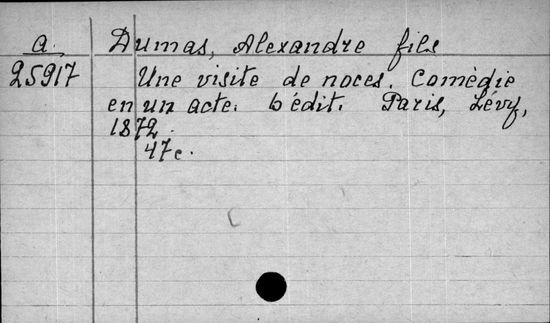 a.
25917
Dumas, Alexandre fils
Une visite de noces. Comédie
en un acte. 6 édit. Paris, Lévy,
1872.
47c.